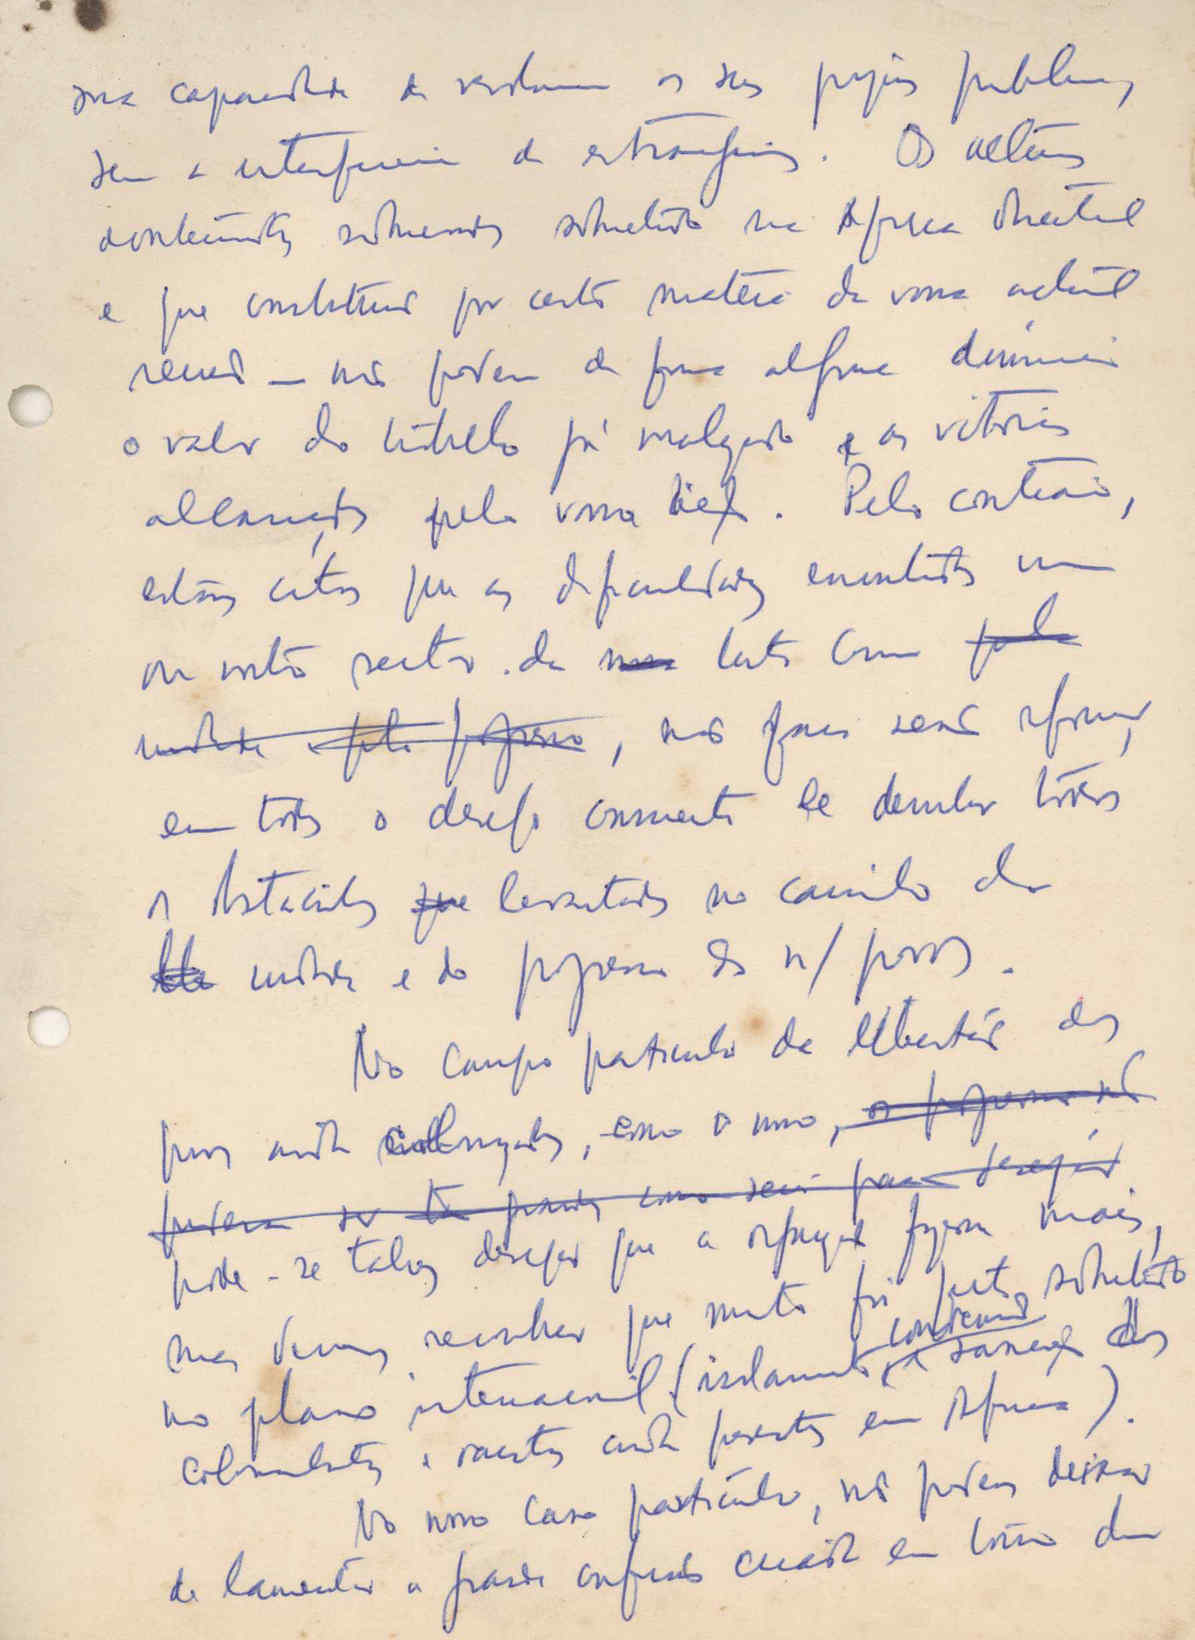 sua capacidade de resolverem os seus próprios problemas,
sem a interferência de estrangeiros. Os últimos
acontecimentos sobretudo na África Oriental
e que constituem por certo matéria da vossa actual
reunião — não podem de forma alguma diminuir
o valor do trabalho já realizado e as vitórias
alcançadas pela vossa . Pelo contrário,
estamos certos que as dificuldades encontradas num
ou noutro sector da nossa luta comum pela
unidade e pelo progresso, não farão senão reforçar
em todos o desejo crescente de derrubar todos
os obstáculos que levantados no caminho da
unidade e do progresso dos n/ povos.
No campo particular da libertação dos
povos ainda colonizados, como o nosso, os progressos não
puderam ser tão grandes como seria para desejar
pode-se talvez desejar que a organização fizesse mais,
mas devemos reconhecer que muito foi feito, sobretudo
no plano internacional (isolamento, condenação e sanções dos
colonialistas e racistas ainda presentes em África).
No nosso caso particular, não podemos deixar
de lamentar a grande confusão criada em torno da